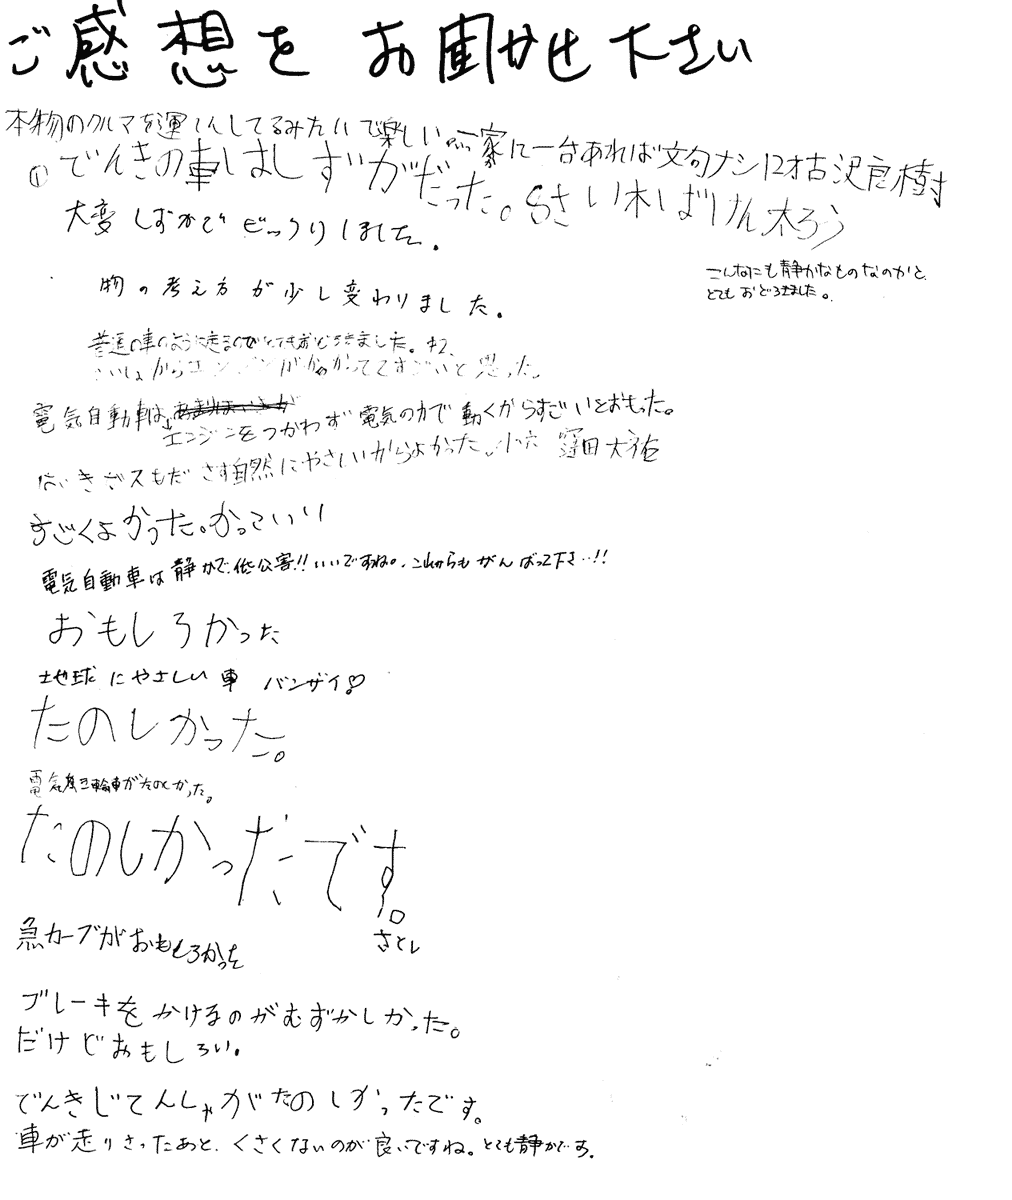 ご感想をお聞かせ下さい
本物のクルマを運てんしてるみたいで楽しい 一家に一台あれば文句ナシ 12才 古沢良樹
① でんきの車はしずかだった。8さい
大変しずかでビックリしました。
こんなにも静かなものなのかと、
とてもおどろきました。
物の考え方が少し変わりました。
普通の車のように走るのでとてもおどろきました。中2、
さいしょからエンジンがかかっててすごいと思った。
電気自動車は、エンジンをつかわず電気の力で動くからすごいとおもった。
はいきガスもださず自然にやさしいからよかった。小六 窪田大祐
すごくよかった。かっこいい
電気自動車は静かで、低公害!!いいですね。これからもがんばって下さい!!
おもしろかった
地球にやさしい車 バンザイ♡
たのしかった。
電気三輪車がたのしかった。
たのしかったです。
さとし
急カーブがおもしろかった
ブレーキをかけるのがむずかしかった。
だけどおもしろい。
でんきじてんしゃがたのしかったです。
車が走りさったあと、くさくないのが良いですね。とても静かです。